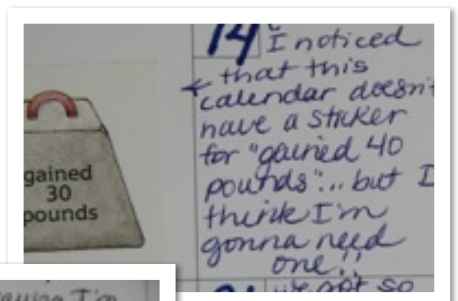 gained
30
pounds
14
I noticed
that this
calendar doesn't
have a sticker
for "gained 40
pounds"... but I
think I'm
gonna need
one!!
got so
I'm